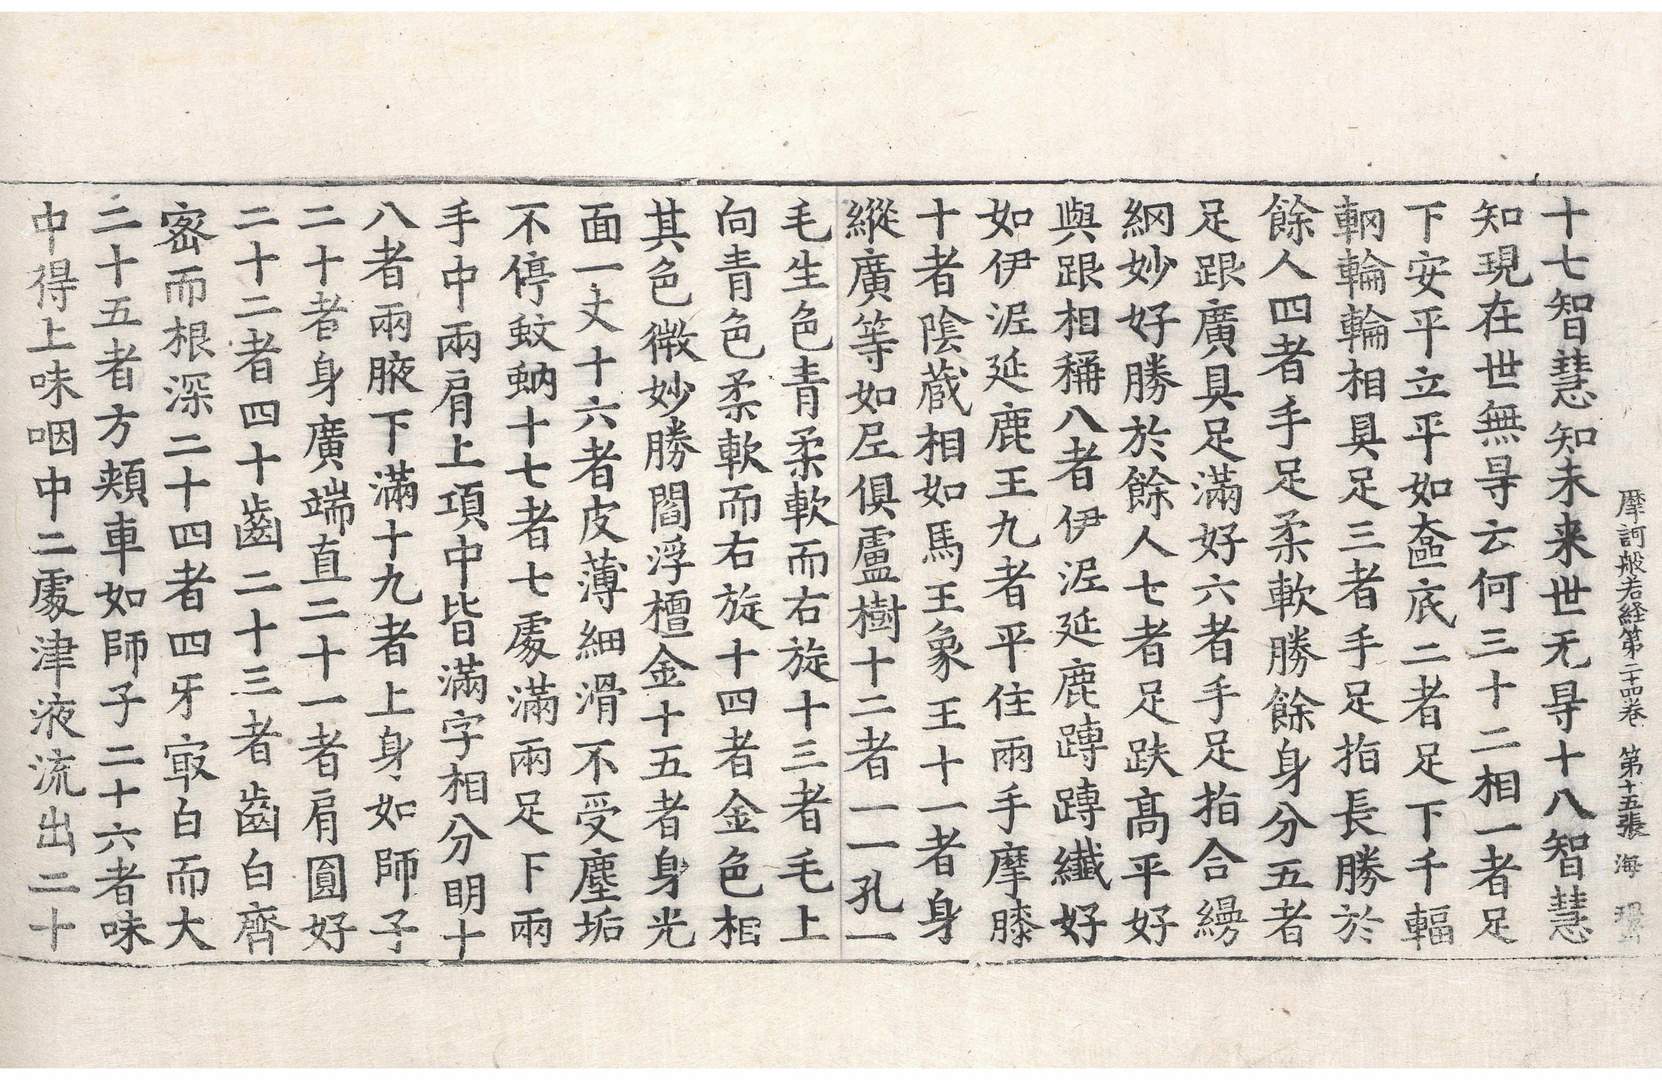 摩訶般若経第二十四卷 第十五張 海
十七智慧知未来世无㝵十八智慧
知現在世無㝵云何三十二相一者足
下安平立平如奩底二者足下千輻
輞輪輪相具足三者手足指長勝於
餘人四者手足柔軟勝餘身分五者
足跟廣具足滿好六者手足指合縵
網妙好勝於餘人七者足趺高平好
與跟相稱八者伊泥延鹿𨄔𨄔纖好
如伊泥延鹿王九者平住兩手摩膝
十者陰藏相如馬王象王十一者身
縱廣等如尼俱盧樹十二者一一孔一
毛生色青柔軟而右旋十三者毛上
向青色柔軟而右旋十四者金色相
其色微妙勝閻浮檀金十五者身光
面一丈十六者皮薄細滑不受塵垢
不停蚊蚋十七者七處滿兩足下兩
手中兩肩上項中皆滿字相分明十
八者兩腋下滿十九者上身如師子
二十者身廣端直二十一者肩圓好
二十二者四十齒二十三者齒白齊
密而根深二十四者四牙冣白而大
二十五者方頰車如師子二十六者味
中得上味咽中二處津液流出二十